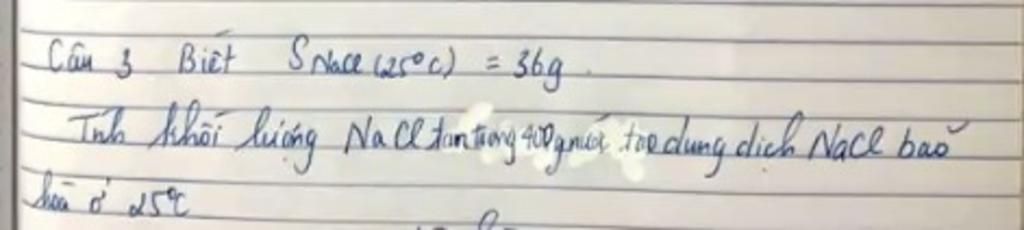 Câu 3 Biết S NaCl (25°C) = 36g.
Tính khối lượng NaCl tan trong 400g nước tạo dung dịch NaCl bão
hoà ở 25°C